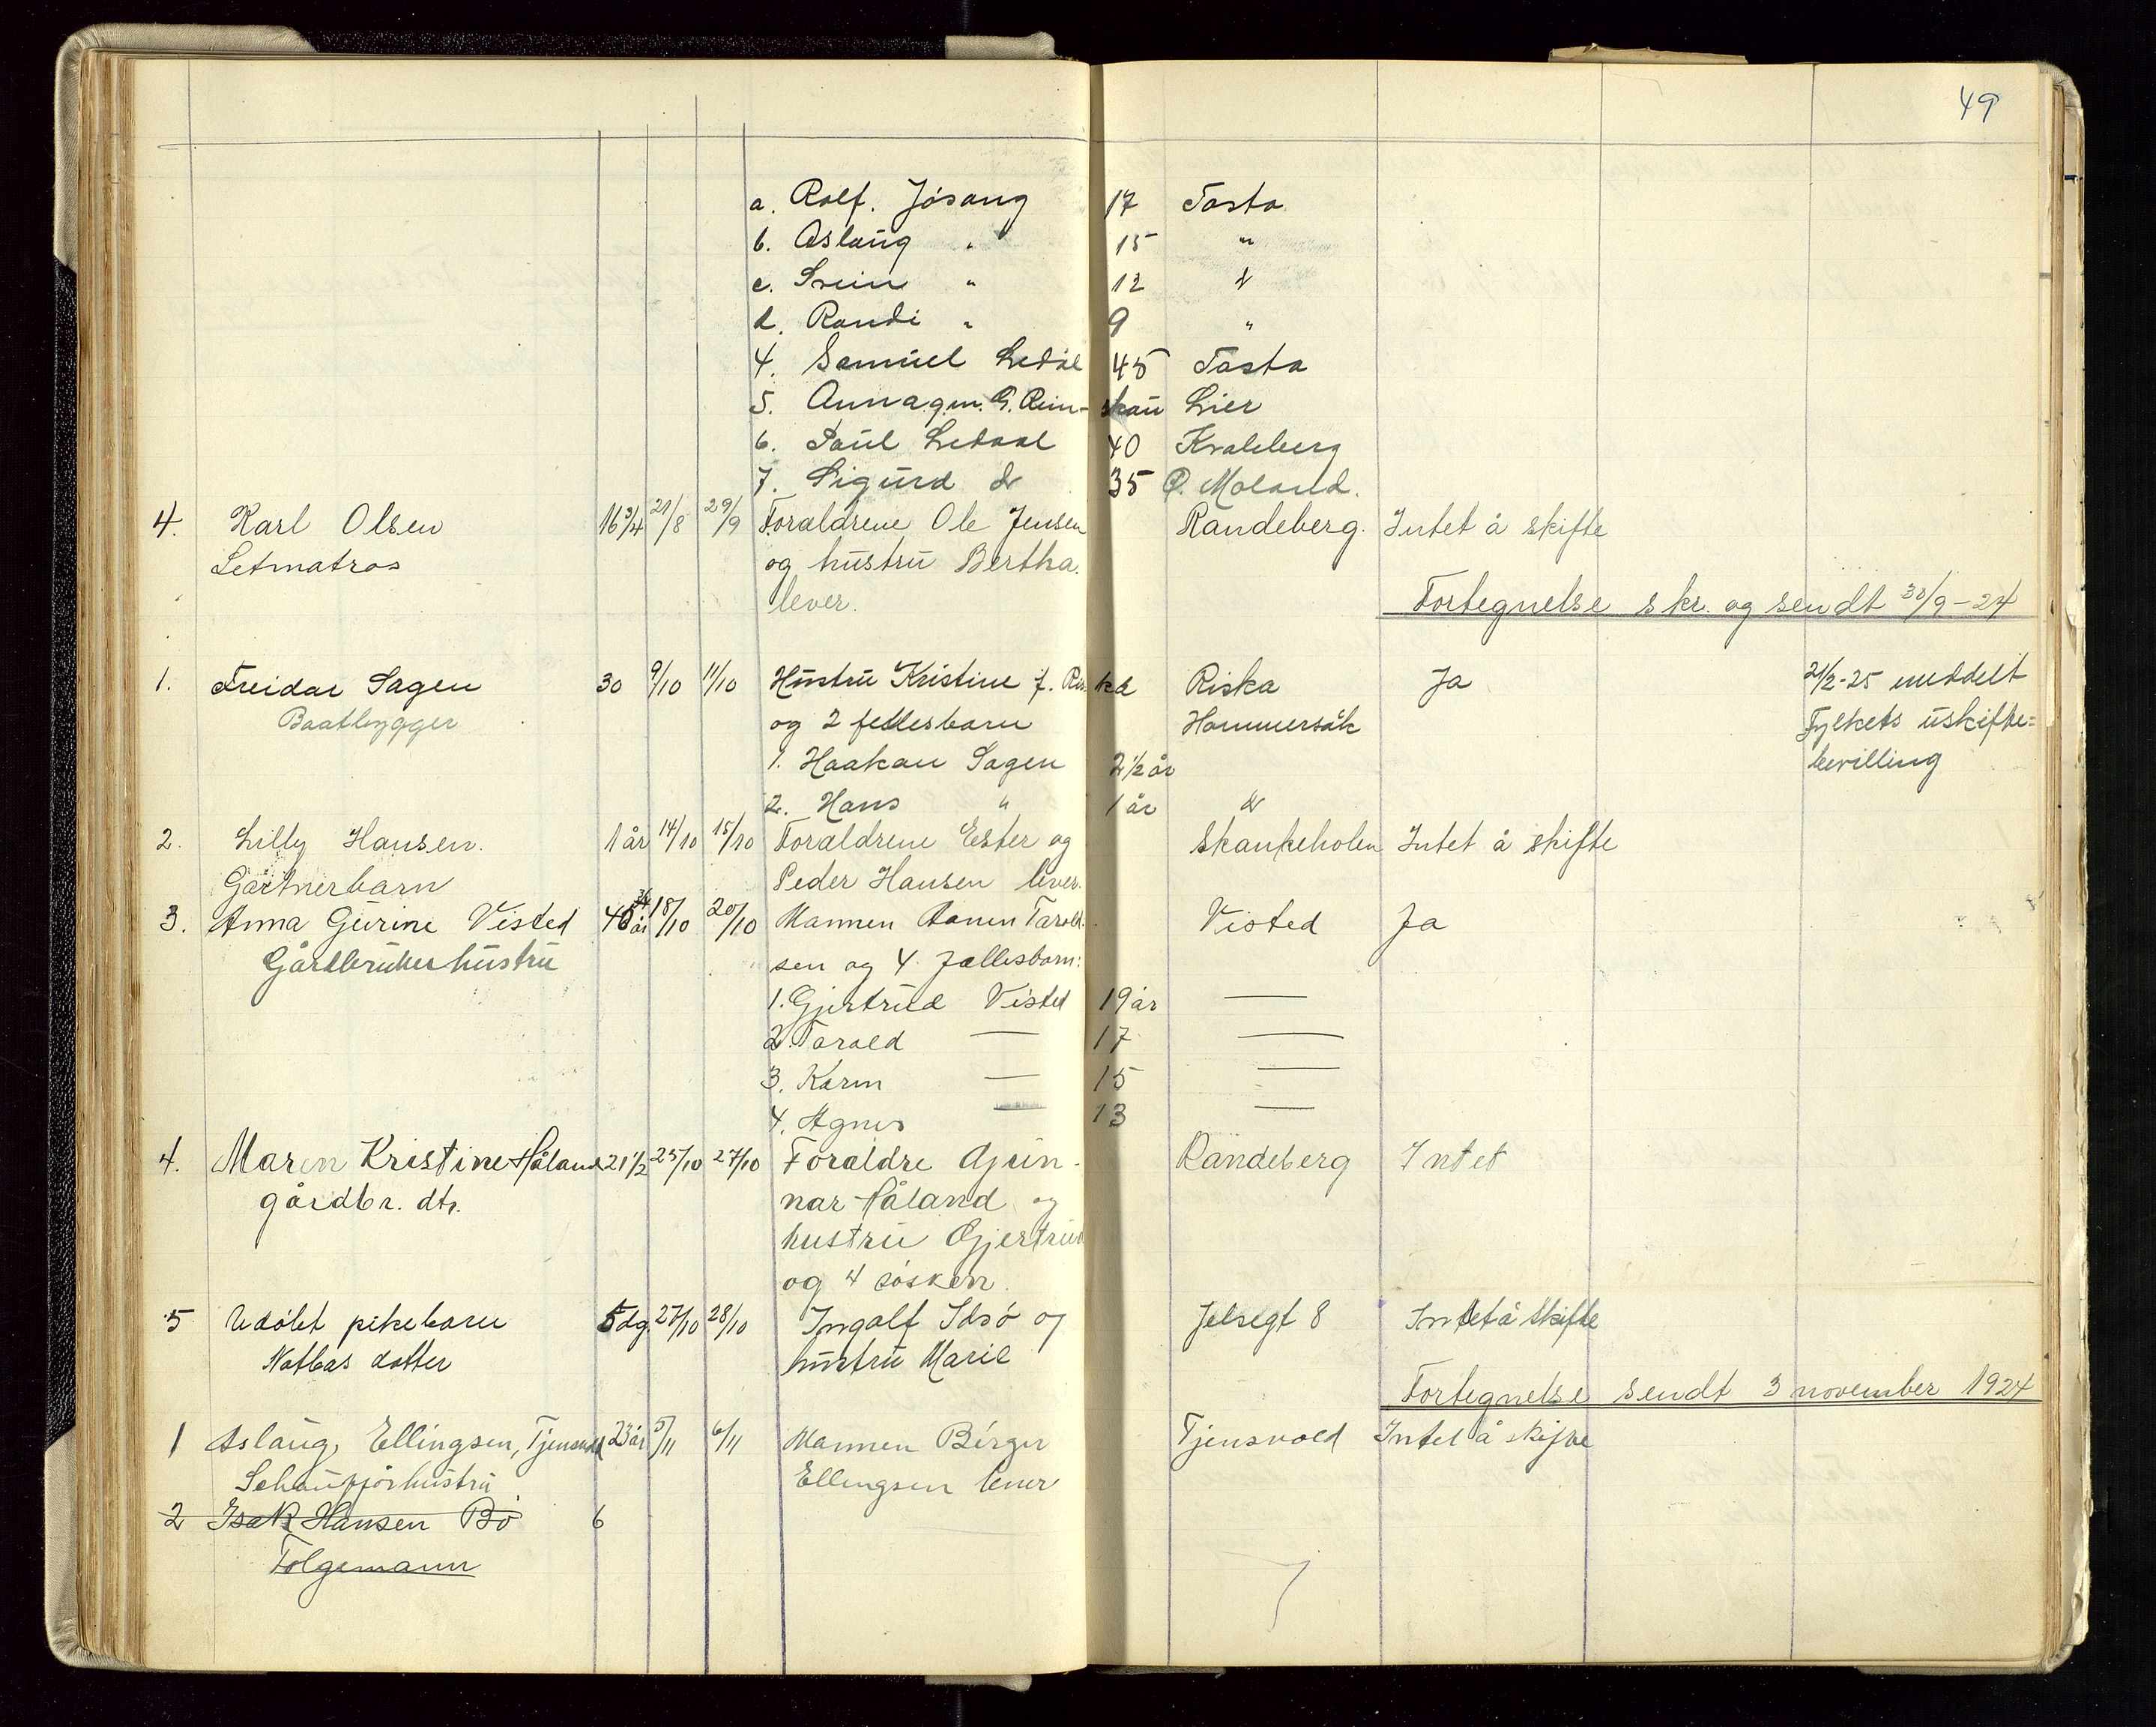 49
a. Rolf. Jósang 17 Tasta
b. Aslaug " 15 "
c. Svein " 12 "
d. Randi " 9 "
4. Samuel Ledal 45 Tasta
5. Anna gm. G. Reinskau Lier
6. Paul Ledaal 40 Kvaleberg
7. Sigurd do 35 Ø. Moland.
4. Karl Olsen 16 3/4 21/8 29/9 Foraldrene Ole Jensen Randeberg. Intet å skifte
Letmatros og hustru Bertha.
lever. Fortegnelse skr. og sendt 30/9-24
1. Treidar Sagen 30 9/10 11/10 Hustru Kristine f. Riska Riska Ja 21/2-25 meddelt
Baatbygger og 2 fellesbarn Hommersåk Fylkets uskifte=
1. Haakon Sagen 2 1/2 år bevilling
2. Hans " 1 år do
2. Lilly Hansen. 1 år 14/10 15/10 Foraldrene Ester og Skankeholen Intet å skifte
Gartnerbarn Peder Hansen lever.
3. Anna Gurine Visted 18/10 20/10 Mannen Tarold- Visted Ja
Gårdbrukerhustru sen og 4 fællesbarn:
1. Gjertrud Visted 19 år —
2. Tarald — 17 —
3. Karin — 15 —
4. Agnes — 13 —
4. Maren Kristine Håland 21 1/2 25/10 27/10 Foraldre Gjun- Randeberg Intet
gårdbr. dtr. nar Håland og
hustru Gjertrud
og 4 søsken.
5 Udøbt pikebarn 5 dg. 27/10 28/10 Ingolf Idsó og Jelsegt 8 Intet å skifte
Notbas datter hustru Marie
Fortegnelse sendt 3 november 1924
1 Aslaug Ellingsen, Tjensvold 23 år 5/11 6/11 Mannen Birger Tjensvold Intet å skifte
Schaufførhustru Ellingsen lever
2 Isak Hansen Bø 6
Folgemann